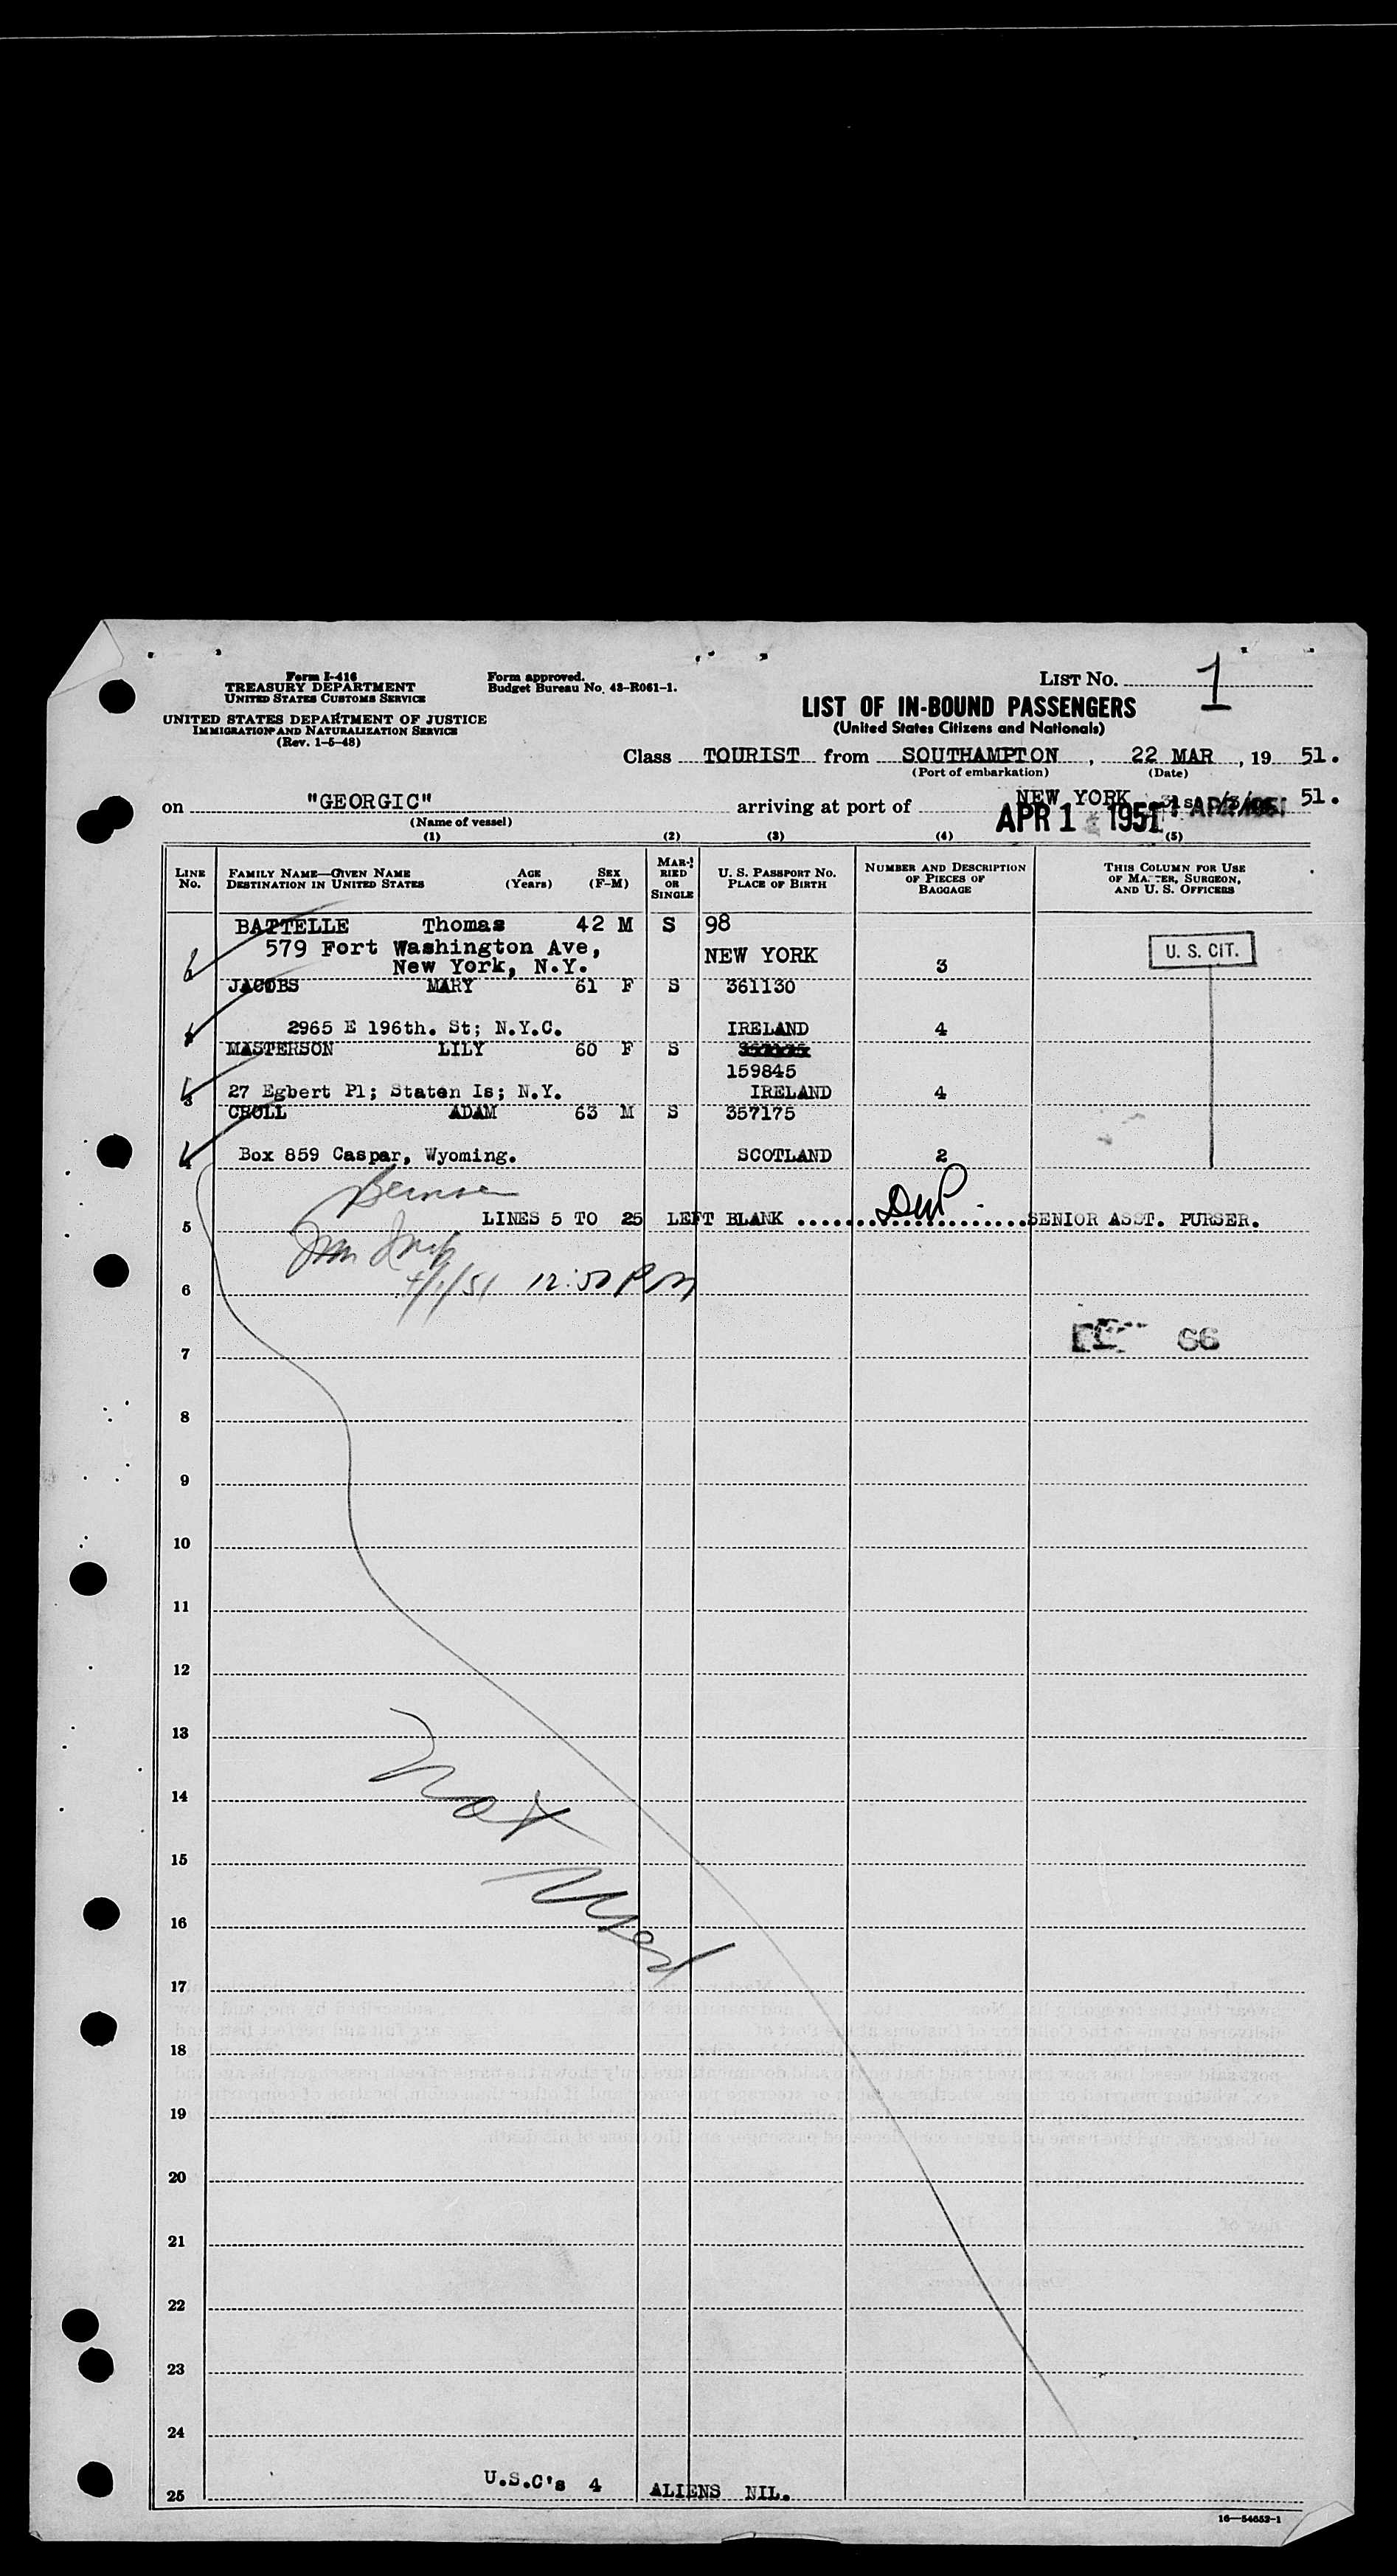 Form I-416
TREASURY DEPARTMENT
UNITED STATES CUSTOMS SERVICE
Form approved.
Budget Bureau No. 43-R061-1.
LIST NO. 1
UNITED STATES DEPARTMENT OF JUSTICE
IMMIGRATION AND NATURALIZATION SERVICE
(Rev. 1-5-48)
LIST OF IN-BOUND PASSENGERS
(United States Citizens and Nationals)
Class TOURIST from SOUTHAMPTON, 22 MAR, 19 51.
(Port of embarkation) (Date)
on "GEORGIC" arriving at port of NEW YORK 51.
(Name of vessel)
APR 1 1951
(1) (2) (3) (4) (5)
LINE NO.
FAMILY NAME—GIVEN NAME
DESTINATION IN UNITED STATES
AGE (Years)
SEX (F-M)
MARRIED OR SINGLE
U. S. PASSPORT No.
PLACE OF BIRTH
NUMBER AND DESCRIPTION OF PIECES OF BAGGAGE
THIS COLUMN FOR USE OF MASTER, SURGEON, AND U. S. OFFICERS
BATTELLE Thomas 42 M S 98
579 Fort Washington Ave,
New York, N.Y. NEW YORK 3
U. S. CIT.
JACOBS MARY 61 F S 361130
2965 E 196th. St; N.Y.C. IRELAND 4
MASTERSON LILY 60 F S
159845
3 27 Egbert Pl; Staten Is; N.Y. IRELAND 4
CROLL ADAM 63 M S 357175
4 Box 859 Caspar, Wyoming. SCOTLAND 2
5 LINES 5 TO 25 LEFT BLANK SENIOR ASST. PURSER.
4/1/51 12:50 PM
6
66
7
8
9
10
11
12
13
14 Not
15
16 Used
17
18
19
20
21
22
23
24
25 U.S.C's 4 ALIENS NIL.
16—54652-1